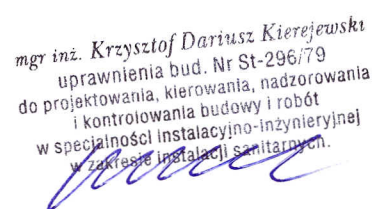 mgr inż. Krzysztof Dariusz Kierejewski
uprawnienia bud. Nr St-296/79
do projektowania, kierowania, nadzorowania
i kontrolowania budowy i robót
w specjalności instalacyjno-inżynieryjnej
w zakresie instalacji sanitarnych.